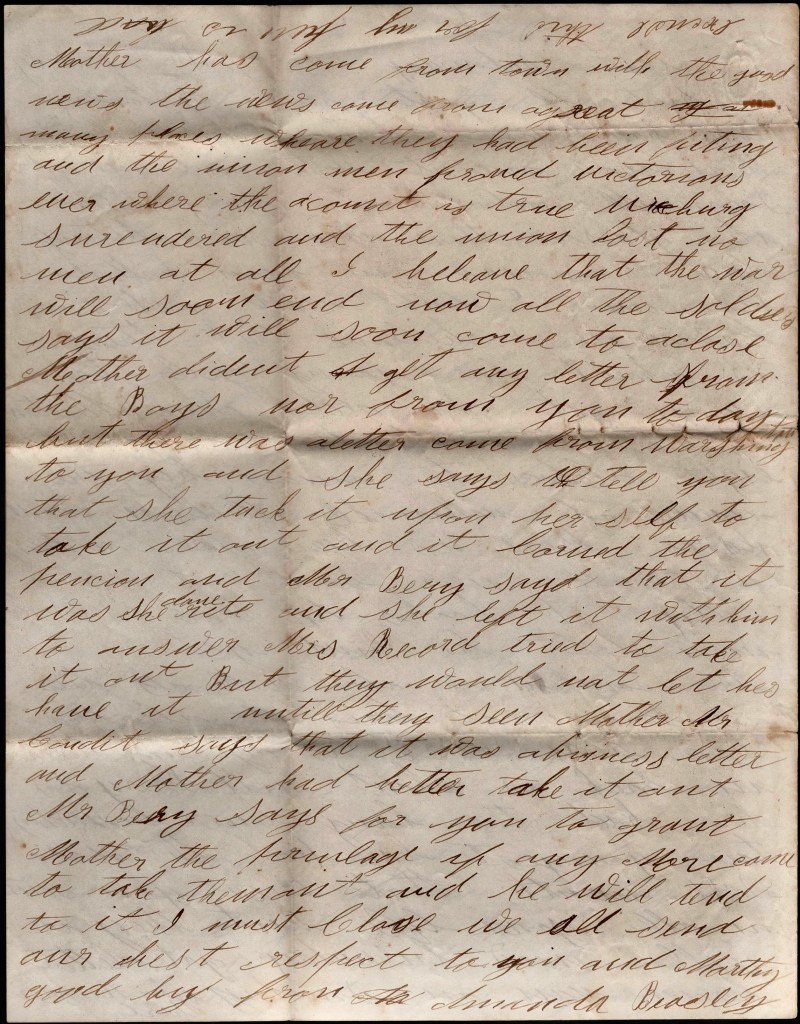 excuse this for my pen is bad
Mother has come from town with the good
news the news come from agreat
many places wheare they had been fiting
and the union men proved victorious
ever where the acount is true Vicburg
surendered and the union lost no
men at all I beleave that the war
will soon end now all the soldiers
says it will soon come to aclose
Mother dident get any letter from
the Boys nor from you to day
but there was aletter come from Warshington
to you and she says to tell you
that she tuck it upon her self to
take it out and it Concerned the
pencion and Mr Bery sayd that it
was she done rite and she left it with him
to answer Mis Record tried to take
it out But they would not let her
have it untill they seen Mother Mr
Condit says that it was abisness letter
and Mother had better take it out
Mr Bery says for you to grant
Mother the privilage if any More come
to take them out and he will tend
to it I must Close we all send
our best respect to you and Marthy
good by from Amanda Beasley